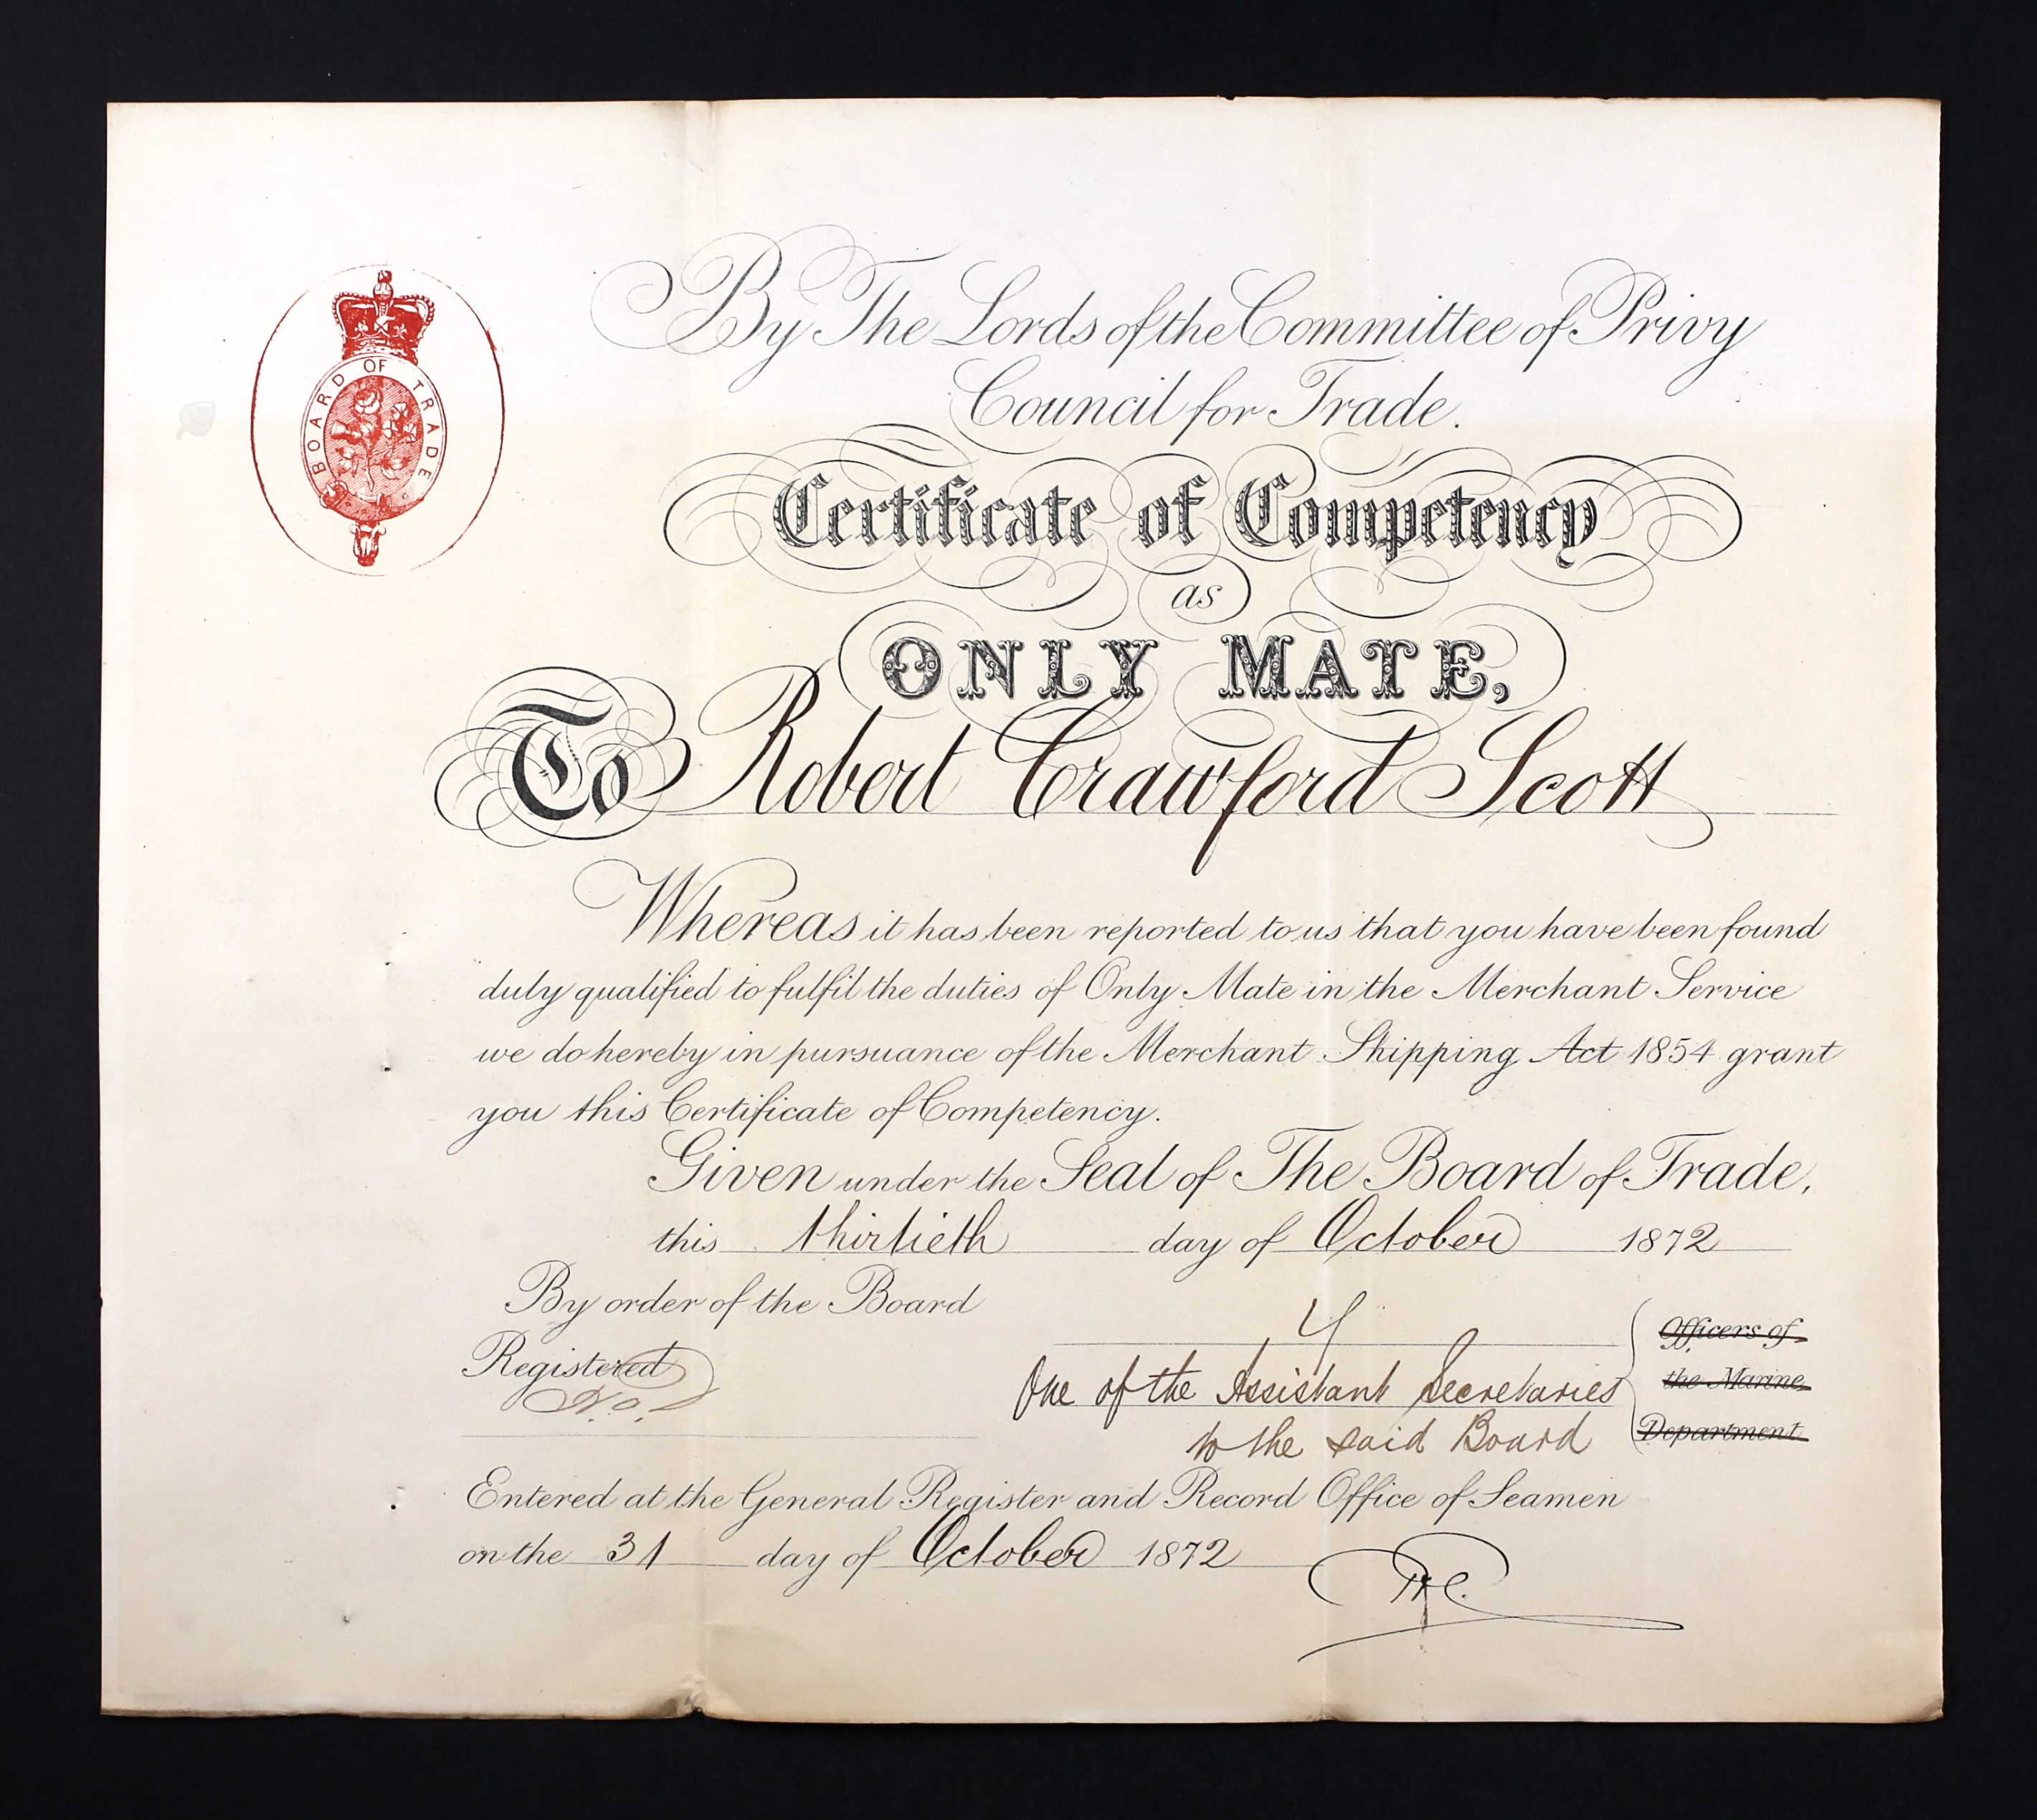 BOARD OF TRADE
By The Lords of the Committee of Privy
Council for Trade.
Certificate of Competency
as
ONLY MATE,
To Robert Crawford Scott
Whereas it has been reported to us that you have been found
duly qualified to fulfil the duties of Only Mate in the Merchant Service
we do hereby in pursuance of the Merchant Shipping Act 1854 grant
you this Certificate of Competency.
Given under the Seal of The Board of Trade,
this thirtieth day of October 1872
By order of the Board
Officers of
the Marine
Department
One of the Assistant Secretaries
to the said Board
Registered
Entered at the General Register and Record Office of Seamen
on the 31 day of October 1872